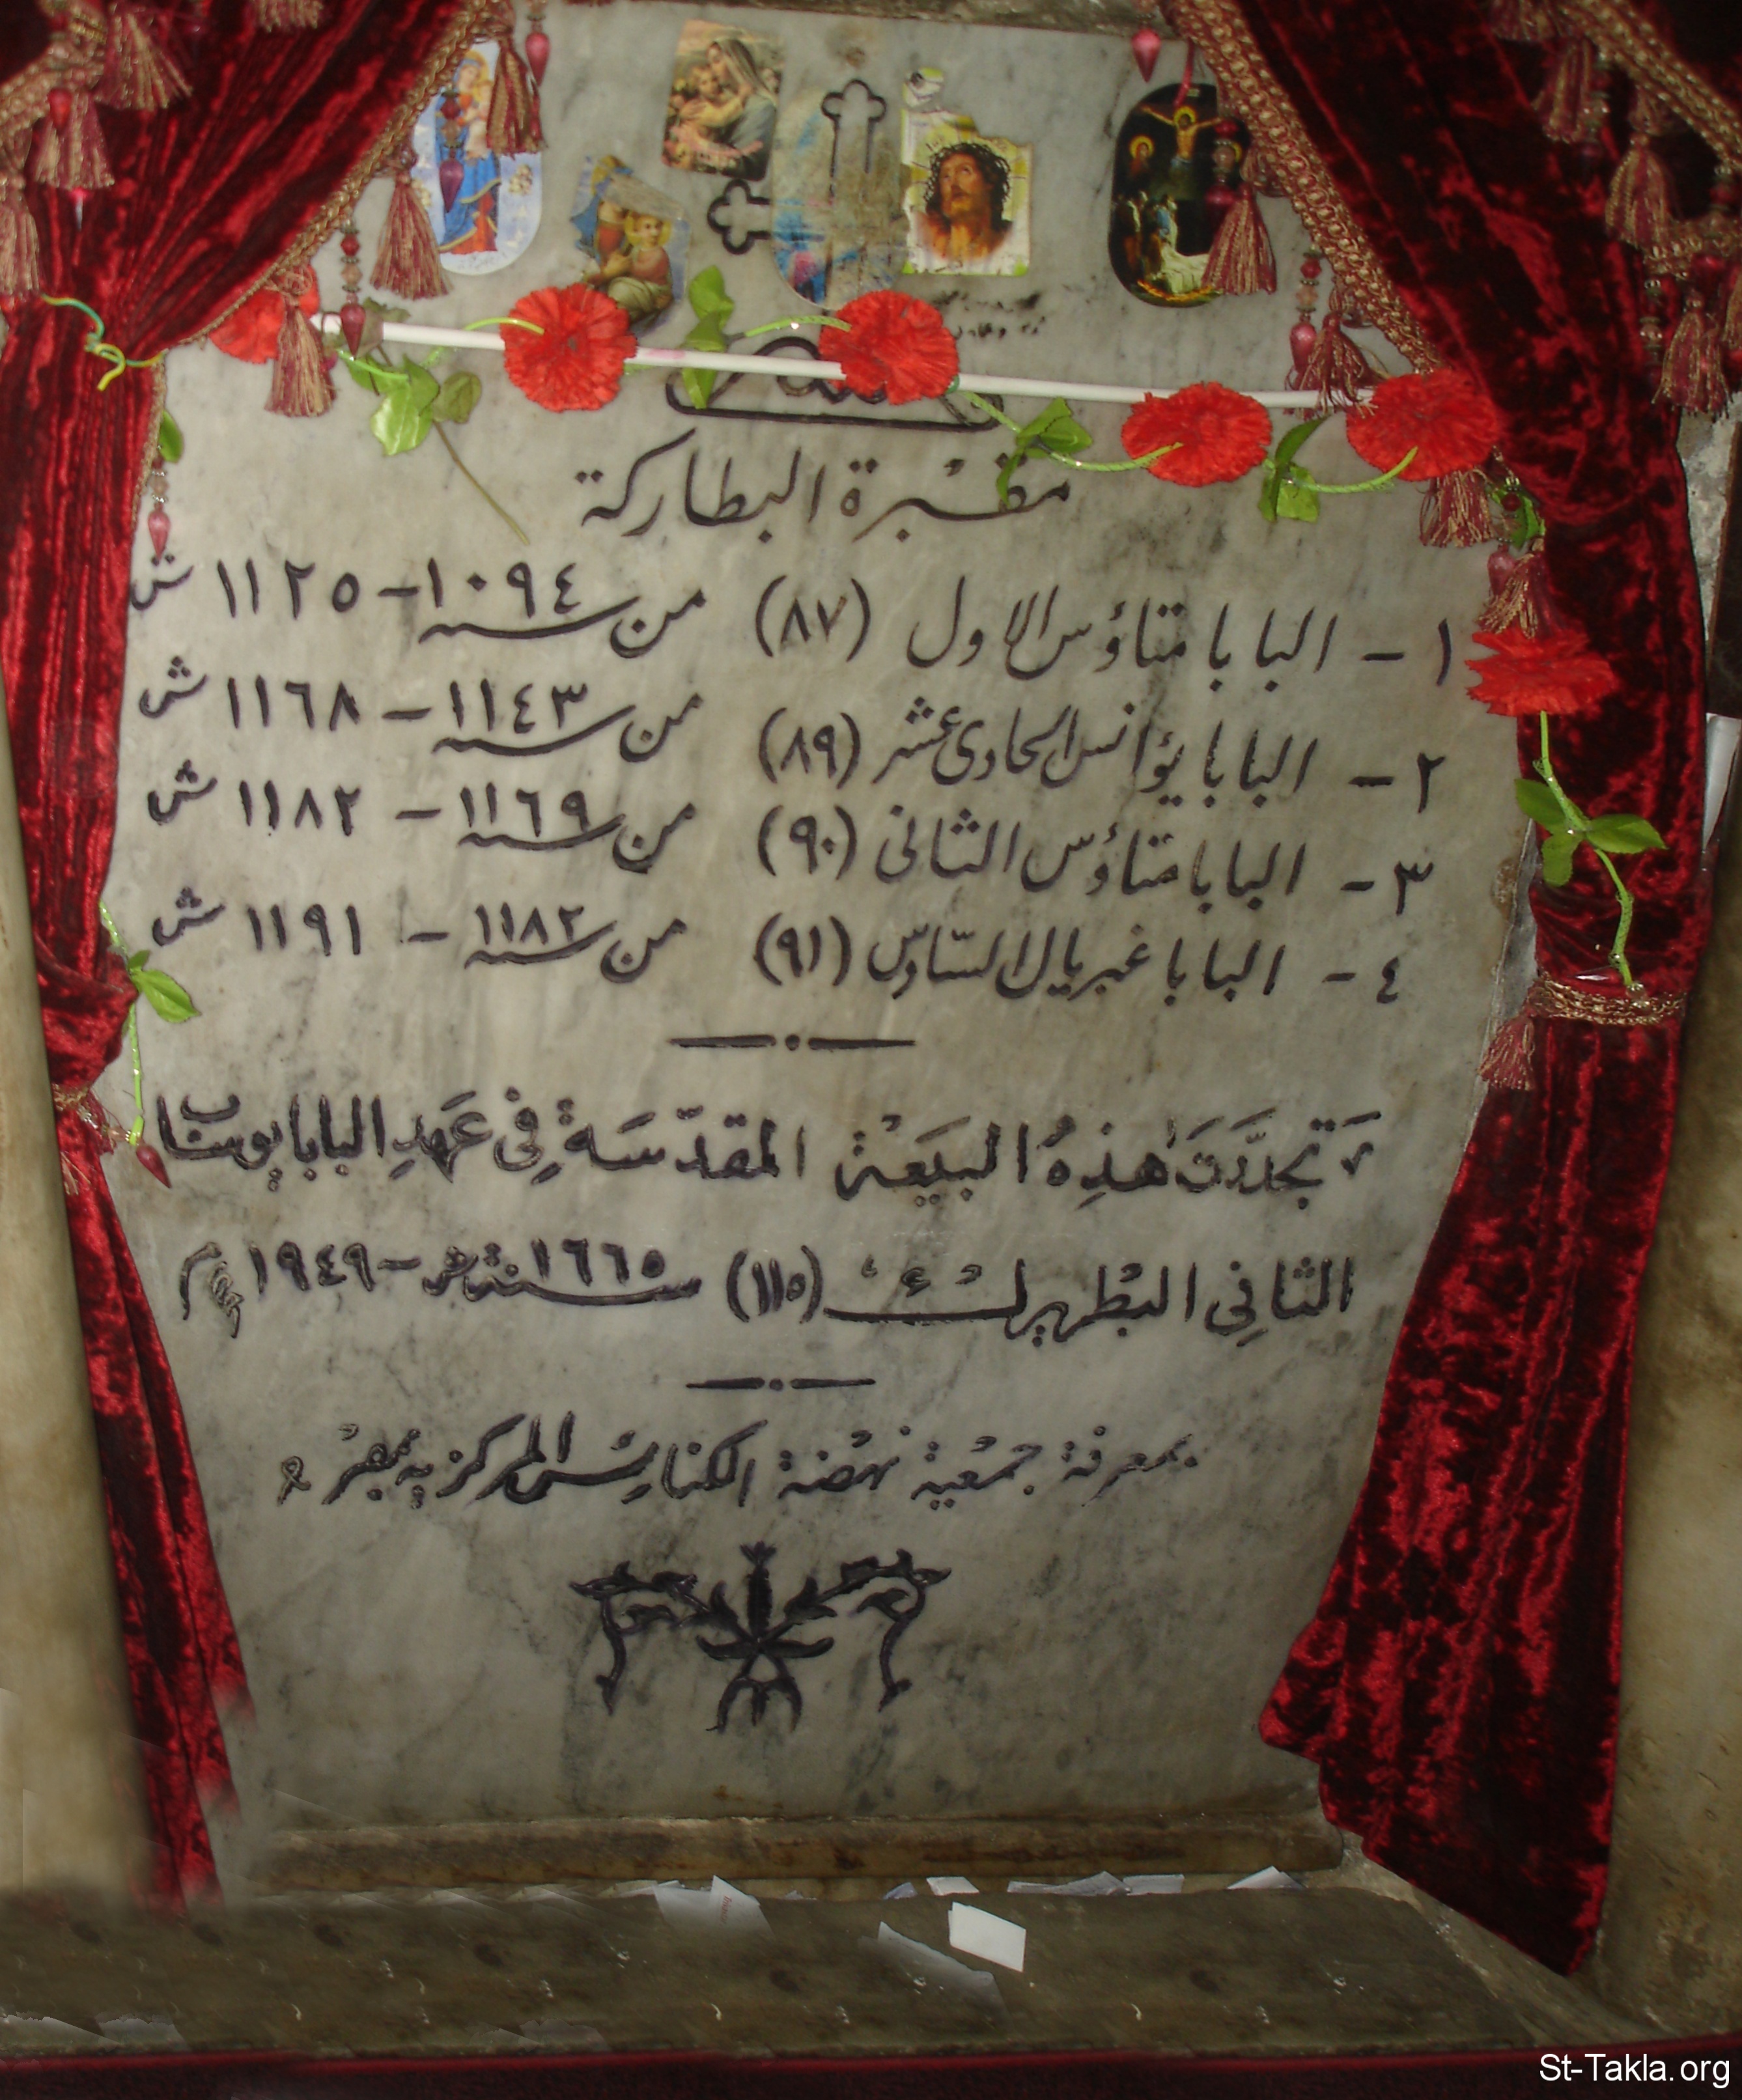 مقبرة البطاركة
١ - البابا متاؤس الاول (٨٧) من سنة ١٠٩٤ - ١١٢٥ ش
٢ - البابا يؤانس الحادى عشر (٨٩) من سنة ١١٤٣ - ١١٦٨ ش
٣ - البابا متاؤس الثانى (٩٠) من سنة ١١٦٩ - ١١٨٢ ش
٤ - البابا غبريال السادس (٩١) من سنة ١١٨٢ - ١١٩١ ش
تجدَّدَتَ هٰذِهُ البَيَعْة المقدّسَة فِي عَهدِ البابا يوساب
الثانِى البْطريرك (١١٥) سنة ١٦٦٥ ش - ١٩٤٩ م
بمعرفة جمْعية نهْضة الكنائِسْ المركزيه بمصْر
St-Takla.org